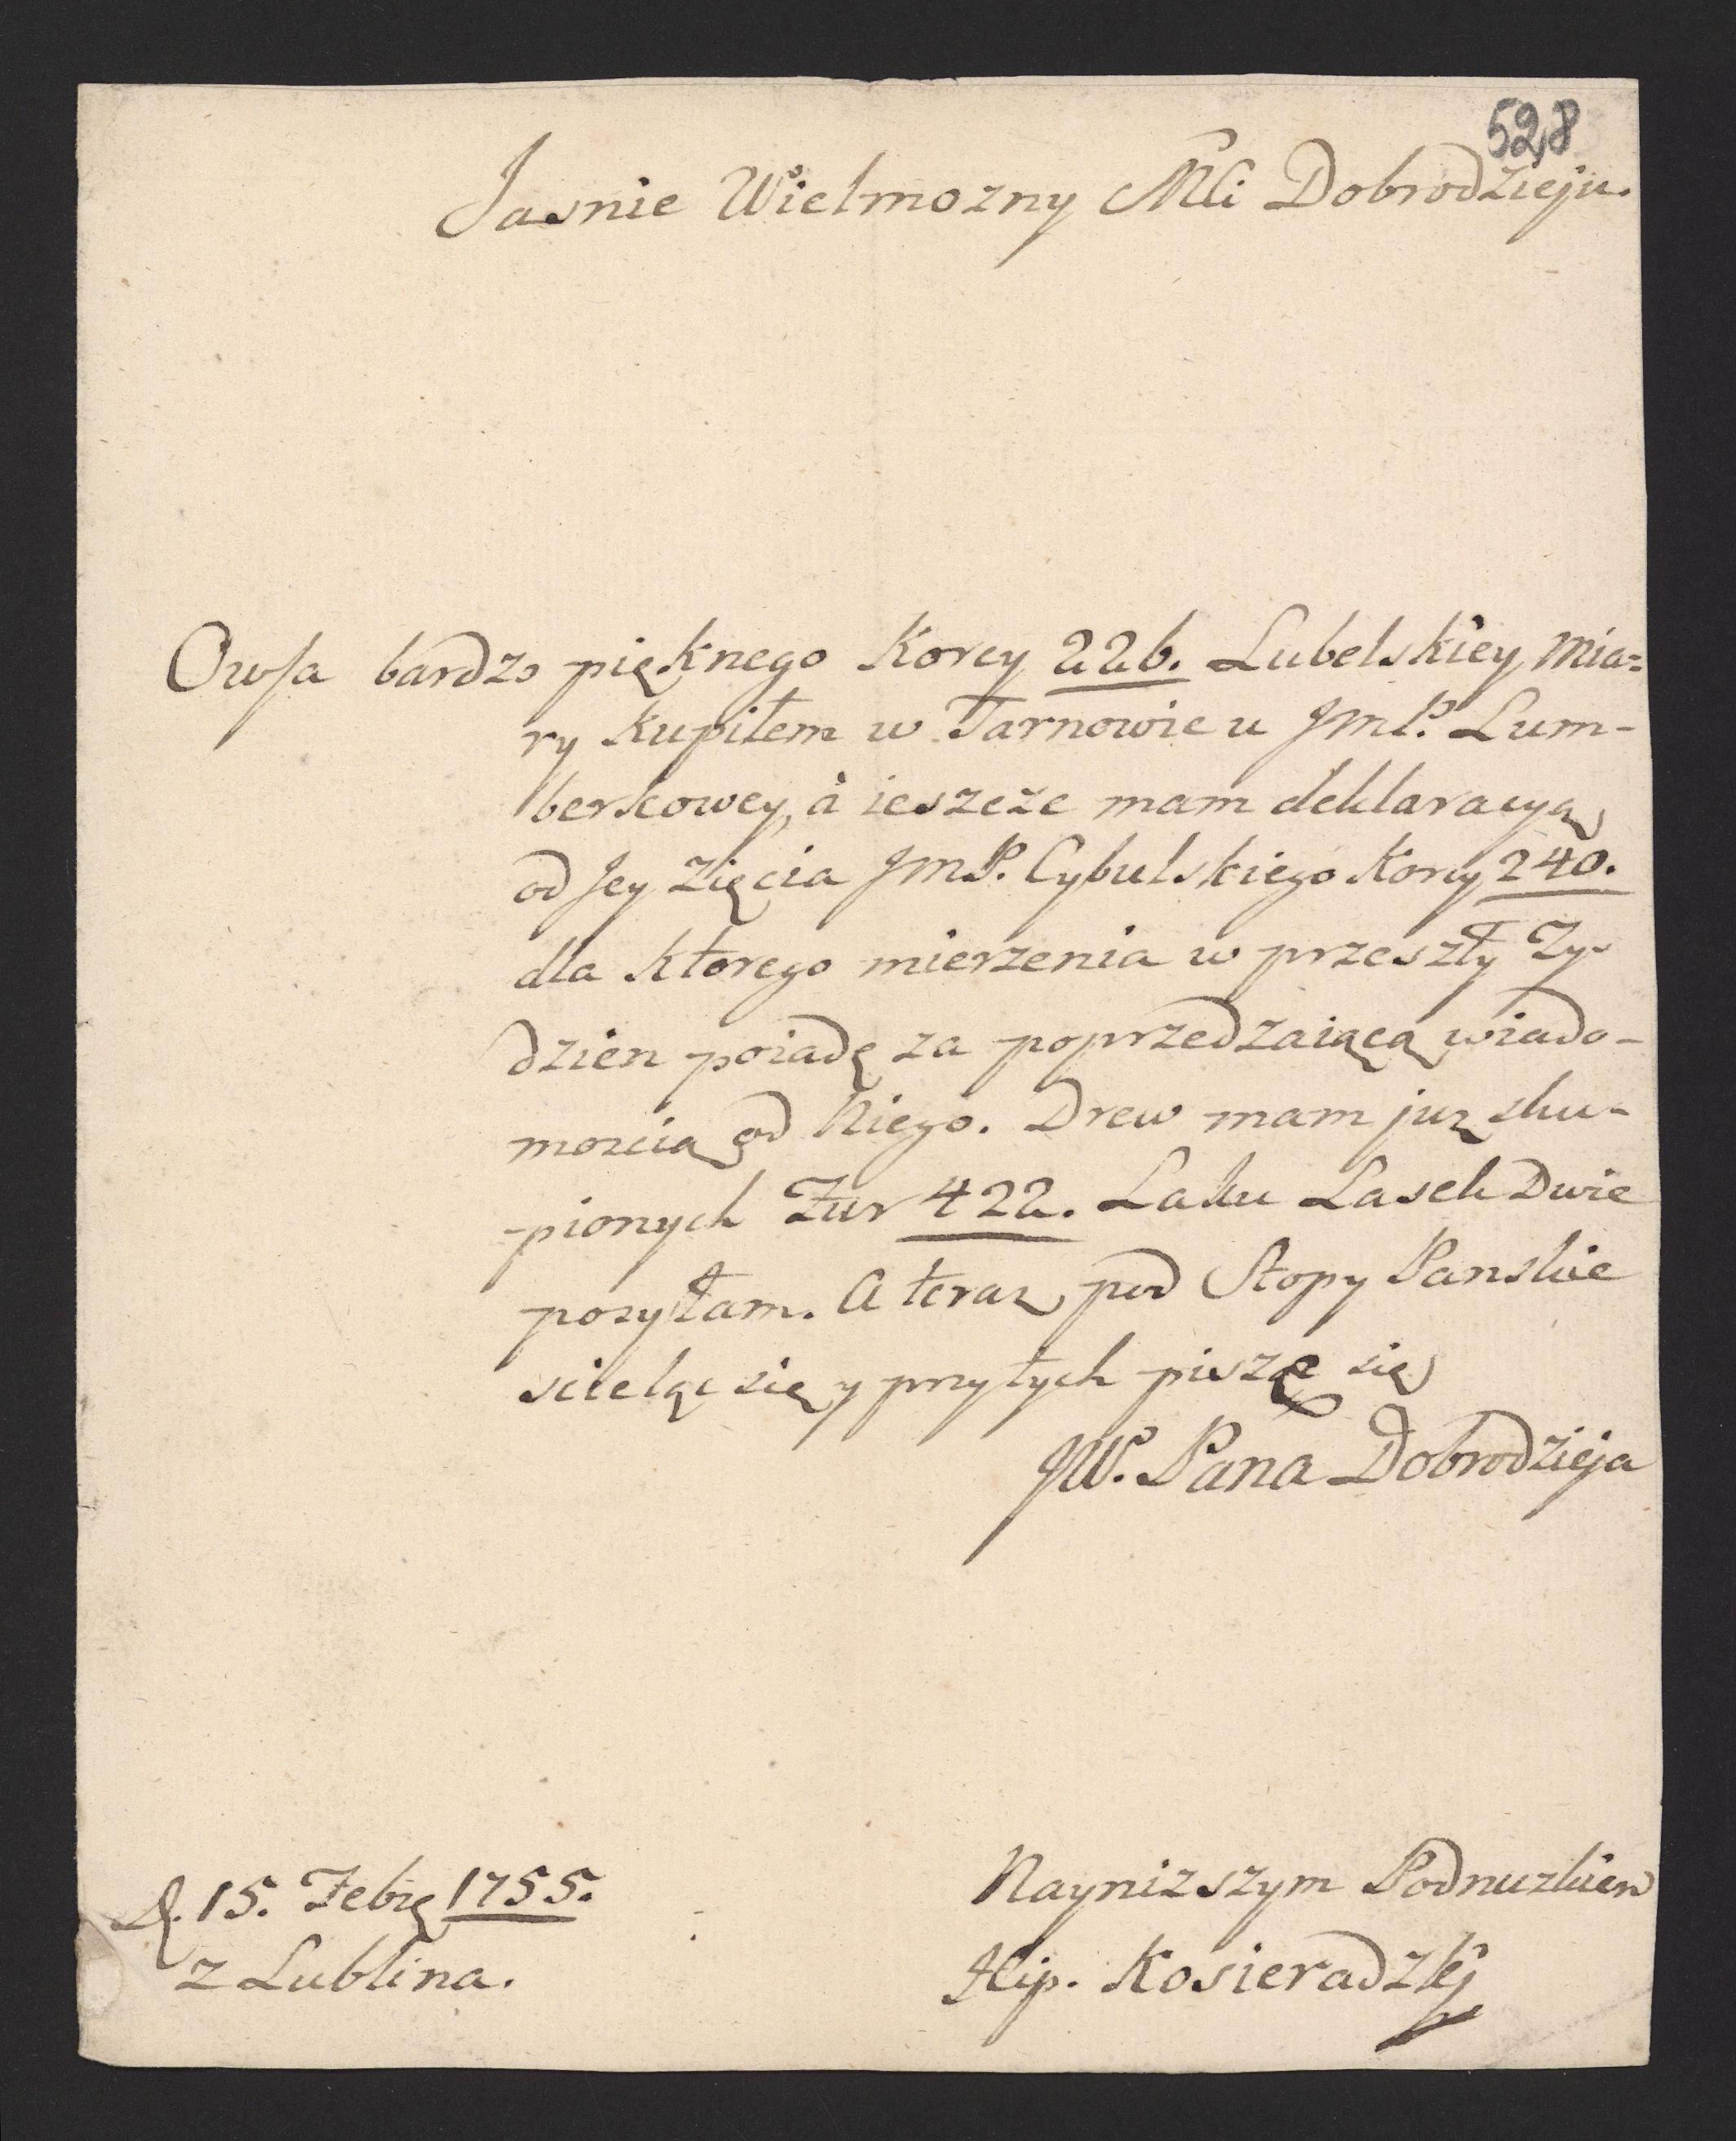 528
Jasnie Wielmozny Mći Dobrodzieju.
Owsa bardzo pięknego Korcy 226. Lubelskiey mia=
ry kupiłem w Tarnowie u JmP. Lum-
berkowey, à ieszcze mam deklaracyą
od Jey Zięcia JmP. Cybulskiego Korcy 240.
dla ktorego mierzenia w przeszły Ty-
dzien poiadę za poprzedzaiącą wiado-
moscią od Niego. Drew mam juz sku-
pionych Fur 422. Laku Lasek Dwie
posyłam. A teraz pod Stopy Panskie
scieląc się y przytych piszę się
JW. Pana Dobrodzieja
D. 15. Febr 1755.
z Lublina.
Nayniszszym Podnuzkiem
Hip. Kosieradzkj